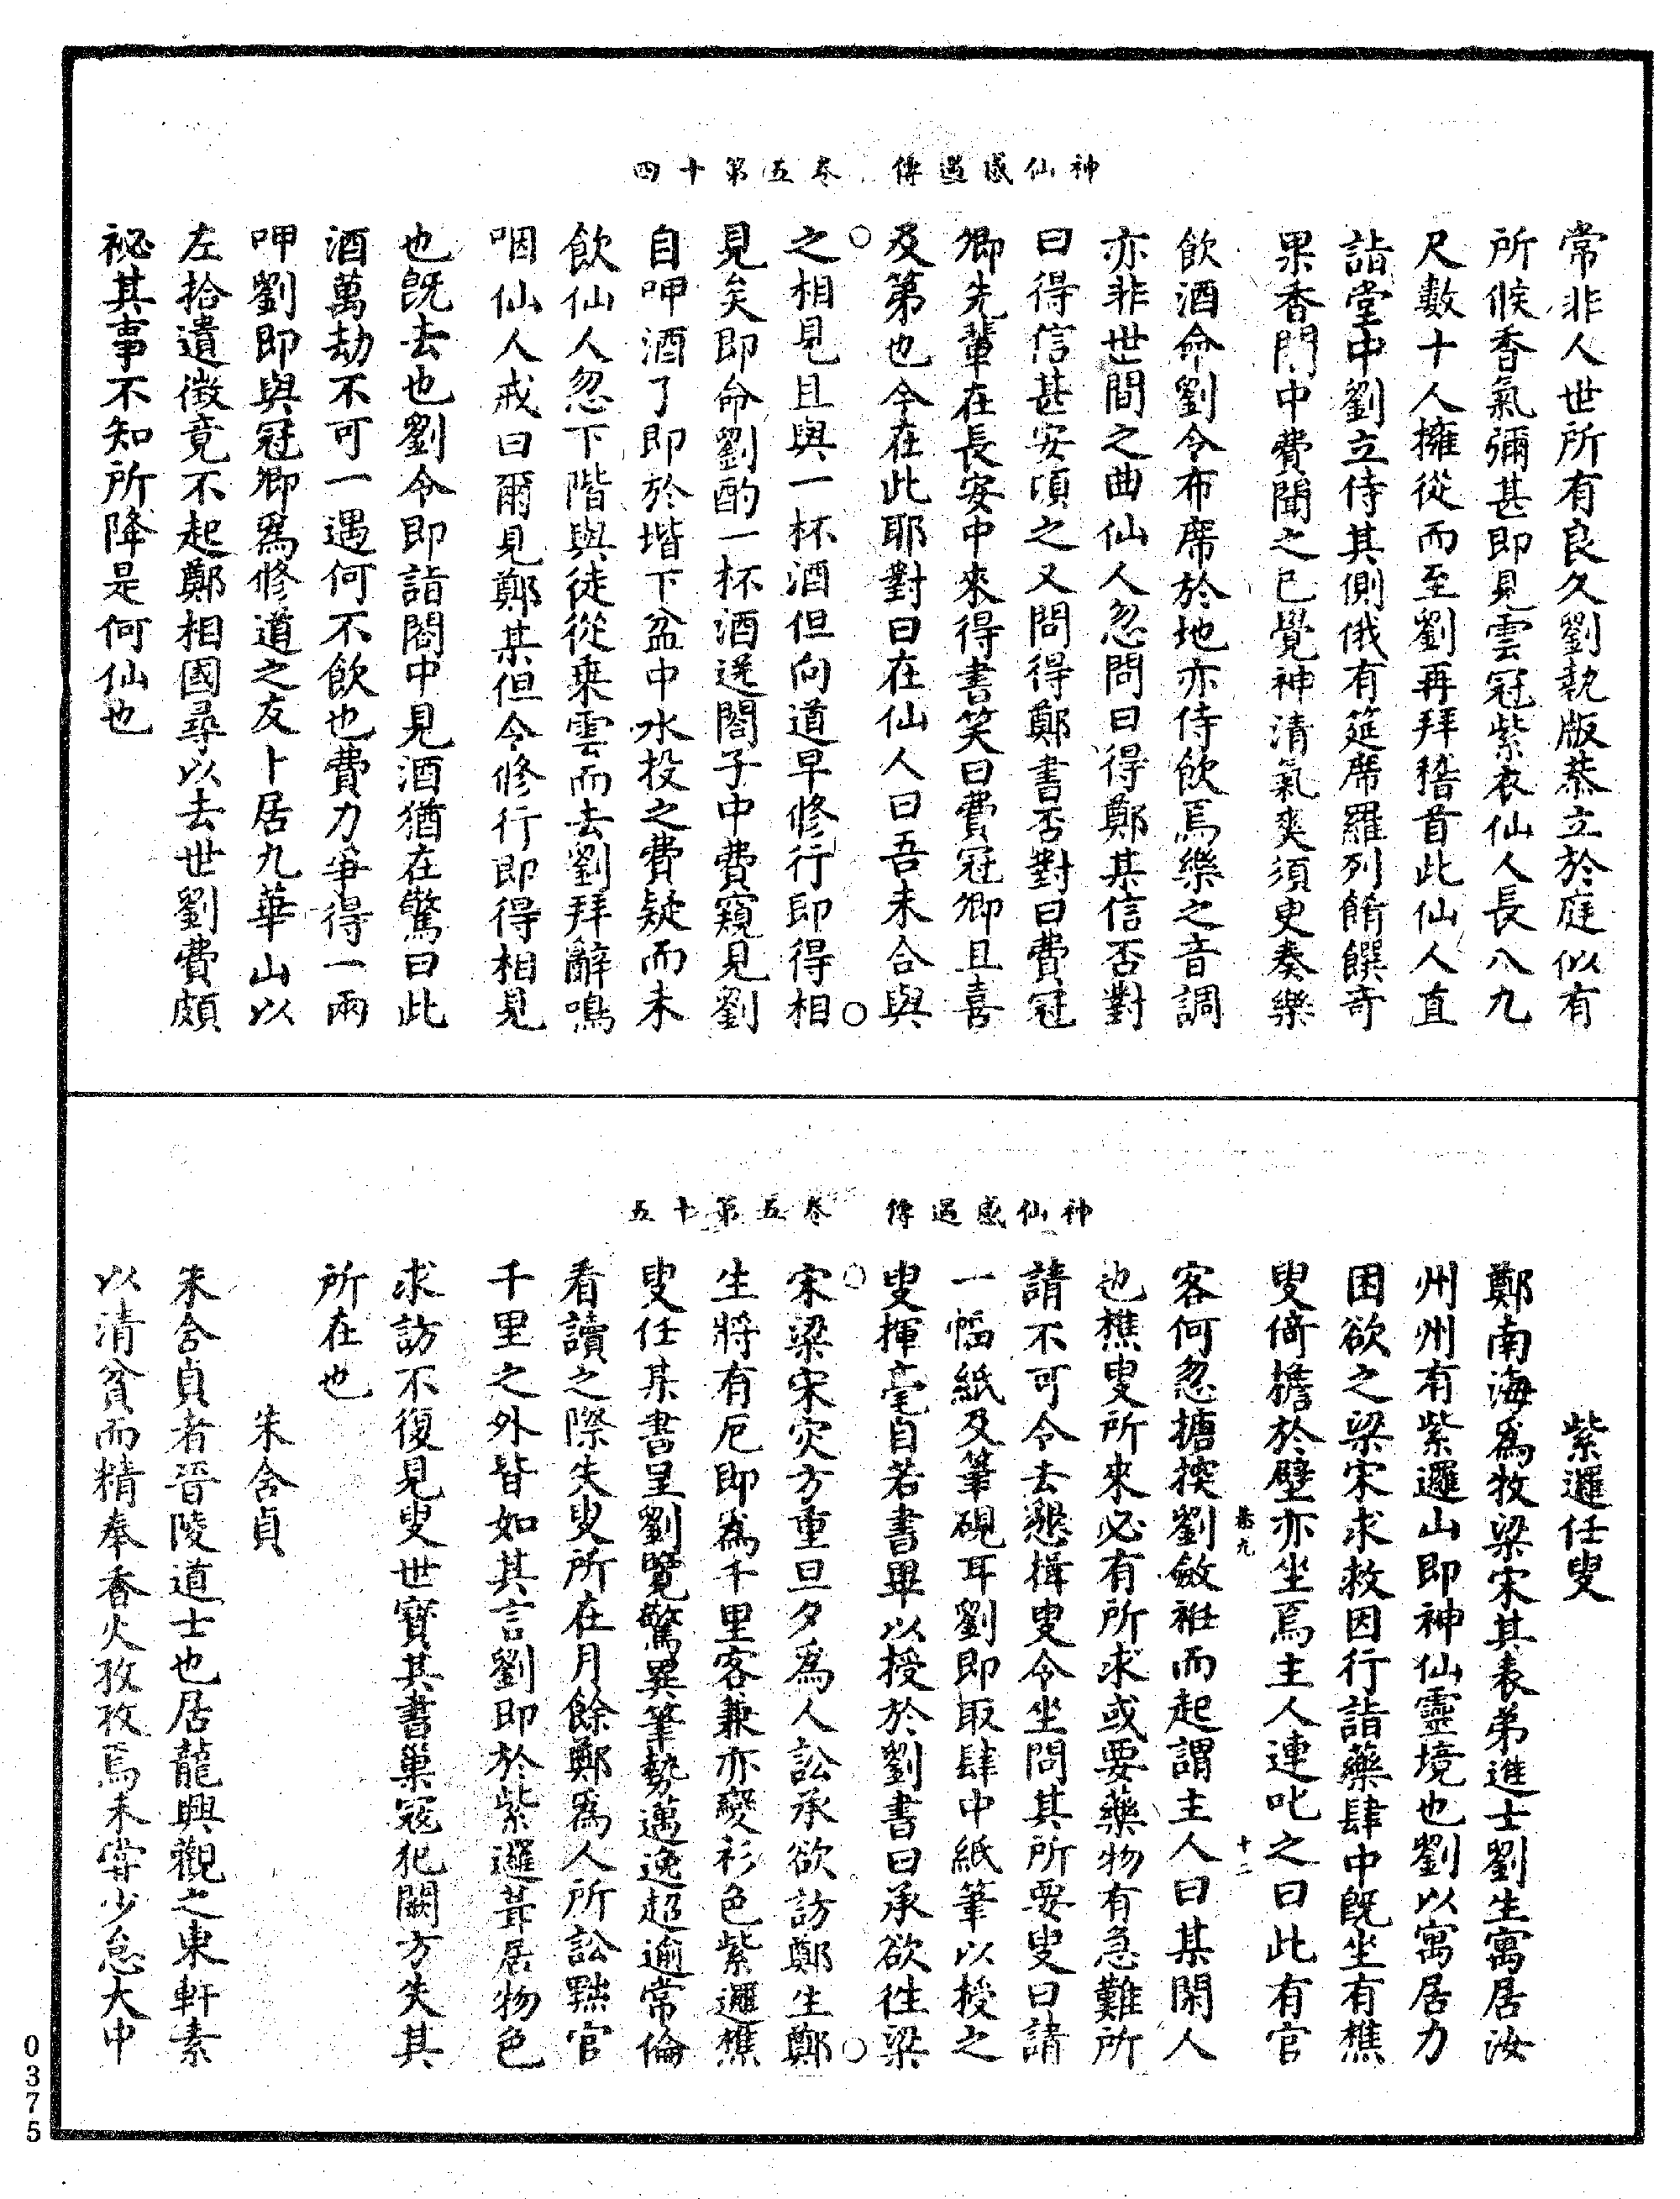 神仙感遇傳 卷五第十四
常非人世所有良久劉執版恭立於庭似有
所候香氣彌甚即見雲冠紫衣仙人長八九
尺數十人擁從而至劉再拜稽首此仙人直
詣堂中劉立侍其側俄有筵席羅列餚饌奇
果香聞中費聞之已覺神清氣爽須臾奏樂
飲酒命劉令布席於地亦侍飲焉樂之音調
亦非世間之曲仙人忽問曰得鄭某信否對
曰得信甚安頃之又問得鄭書否對曰費冠
卿先輩在長安中來得書笑曰費冠卿且喜
及第也今在此耶對曰在仙人曰吾未合與
之相見且與一杯酒但向道早修行即得相
見矣即命劉酌一杯酒送閤子中費窺見劉
自呷酒了即於堦下盆中水投之費疑而未
飲仙人忽下階與徒從乘雲而去劉拜辭鳴
咽仙人戒曰爾見鄭某但令修行即得相見
也旣去也劉令即詣閤中見酒猶在驚曰此
酒萬劫不可一遇何不飲也費力爭得一兩
呷劉即與冠卿爲修道之友卜居九華山以
左拾遺徵竟不起鄭相國尋以去世劉費頗
祕其事不知所降是何仙也
神仙感遇傳 卷五第十五
紫邏任叟
鄭南海爲牧梁宋其表弟進士劉生寓居汝
州州有紫邏山即神仙靈境也劉以寓居力
困欲之梁宋求救因行詣藥肆中旣坐有樵
叟倚擔於壁亦坐焉主人連叱之曰此有官
客何忽搪揬劉斂袵而起謂主人曰某閑人
也樵叟所來必有所求或要藥物有急難所
請不可令去懇揖叟令坐問其所要叟曰請
一幅紙及筆硯耳劉即取肆中紙筆以授之
叟揮毫自若書畢以授於劉書曰承欲往梁
宋梁宋灾方重旦夕爲人訟承欲訪鄭生鄭
生將有厄即爲千里客兼亦變衫色紫邏樵
叟任某書呈劉覽驚異筆勢遒逸超逾常倫
看讀之際失叟所在月餘鄭爲人所訟黜官
千里之外皆如其言劉即於紫邏葺居物色
求訪不復見叟世寶其書巢寇犯闕方失其
所在也
朱含貞
朱含貞者晉陵道士也居龍興觀之東軒素
以清貧而精奉香火孜孜焉未甞少怠大中
0375